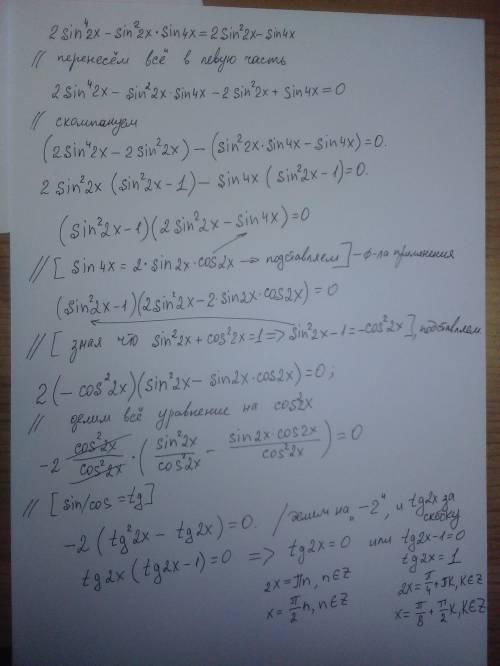 2 sin⁴2x - sin²2x · sin4x = 2 sin²2x - sin4x
// перенесём всё в левую часть
2 sin⁴2x - sin²2x · sin4x - 2 sin²2x + sin4x = 0
// скомпануем
(2 sin⁴2x - 2 sin²2x) - (sin²2x · sin4x - sin4x) = 0.
2 sin²2x (sin²2x - 1) - sin4x (sin²2x - 1) = 0.
(sin²2x - 1)(2 sin²2x - sin4x) = 0
// [sin4x = 2 · sin2x · cos2x → подставляем] - ф-ла применения
(sin²2x - 1)(2 sin²2x - 2 · sin2x · cos2x) = 0
// [зная что sin²2x + cos²2x = 1 => sin²2x - 1 = -cos²2x], подставляем
2(-cos²2x)(sin²2x - sin2x · cos2x) = 0;
// делим всё уравнение на cos²2x
-2 cos²2x/cos²2x · (sin²2x/cos²2x - sin2x · cos2x/cos²2x) = 0
// [sin/cos = tg]
-2(tg²2x - tg2x) = 0. / делим на "-2", и tg2x за скобку
tg2x (tg2x - 1) = 0 => tg2x = 0 или tg2x - 1 = 0
tg2x = 1
2x = πn, n∈Z 2x = π/4 + πk, k∈Z
x = π/2 n, n∈Z x = π/8 + π/2 k, k∈Z